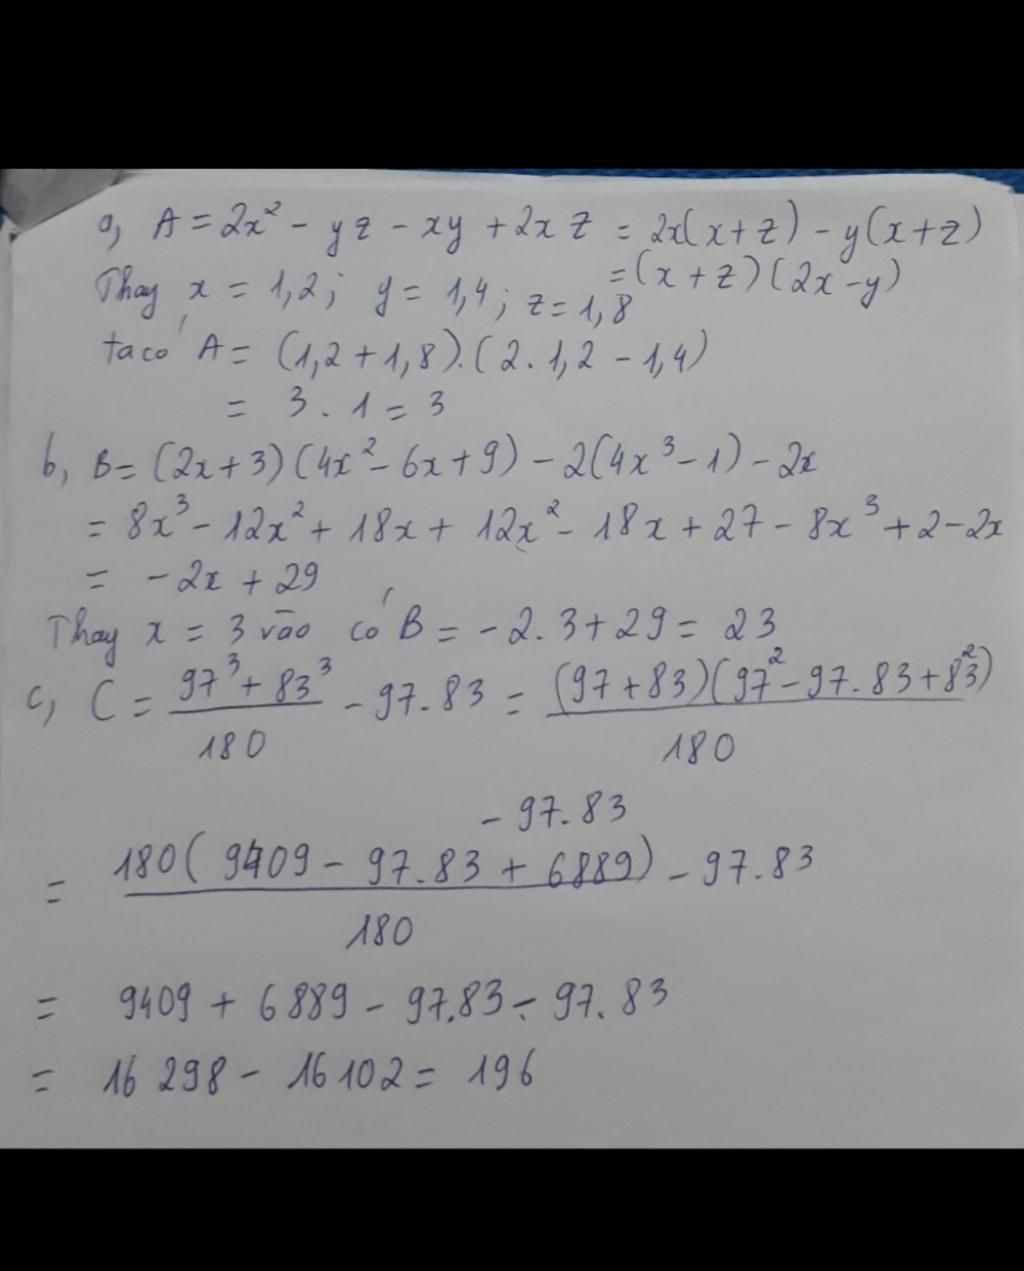 a, A = 2x² - yz - xy + 2xz = 2x(x+z) - y(x+z)
= (x+z)(2x-y)
Thay x = 1,2; y = 1,4; z = 1,8
ta có A = (1,2 + 1,8).(2. 1,2 - 1,4)
= 3 . 1 = 3
b, B = (2x+3)(4x² - 6x + 9) - 2(4x³ - 1) - 2x
= 8x³ - 12x² + 18x + 12x² - 18x + 27 - 8x³ + 2 - 2x
= -2x + 29
Thay x = 3 vào có B = -2. 3 + 29 = 23
c, C = (97³ + 83³)/180 - 97.83 = (97+83)(97² - 97.83 + 83²)/180
- 97.83
= 180(9409 - 97.83 + 6889)/180 - 97.83
= 9409 + 6889 - 97.83 - 97.83
= 16 298 - 16 102 = 196